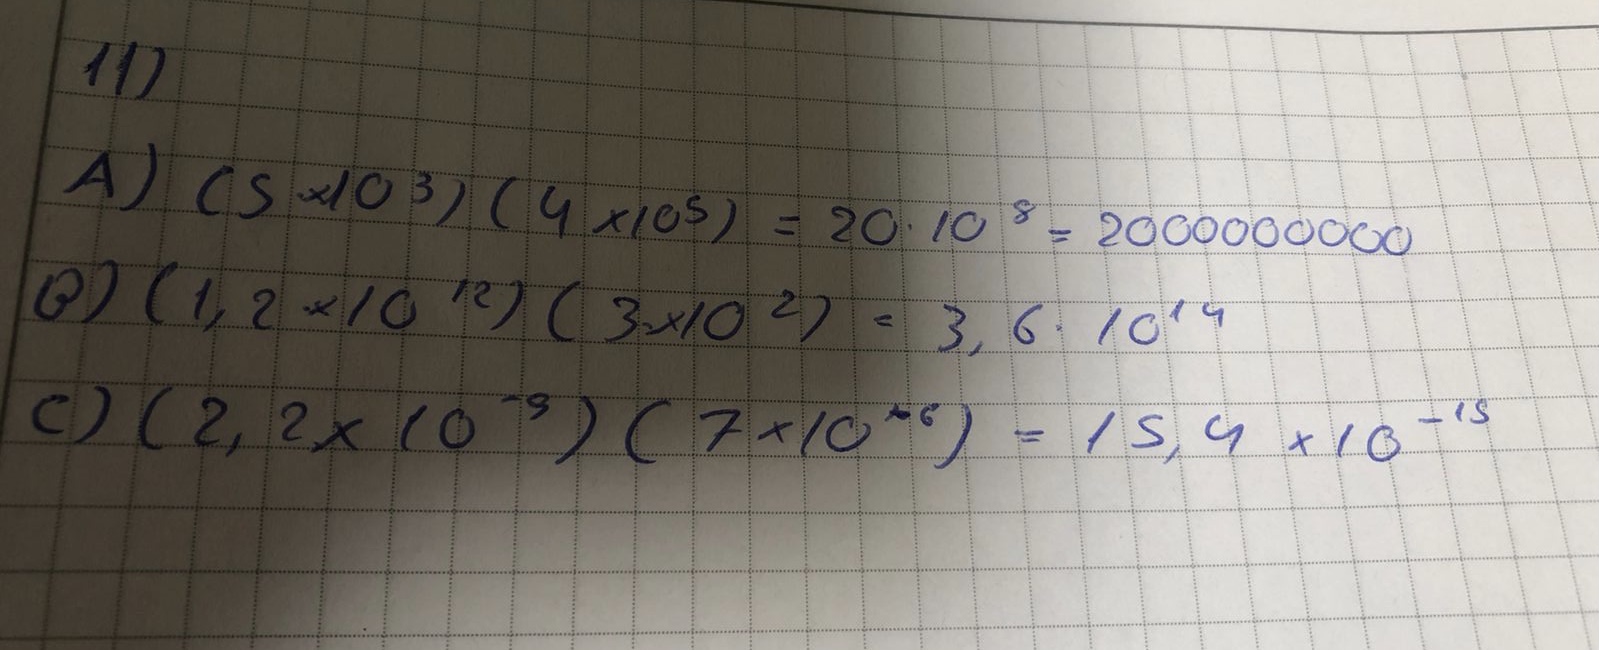 11)
A) (5 ×10³) (4 ×10⁵) = 20·10⁸ = 2000000000
B) (1,2 ×10¹²) (3×10²) = 3,6·10¹⁴
C) (2,2×10⁻⁹) (7×10⁻⁶) = 15,4 ×10⁻¹⁵